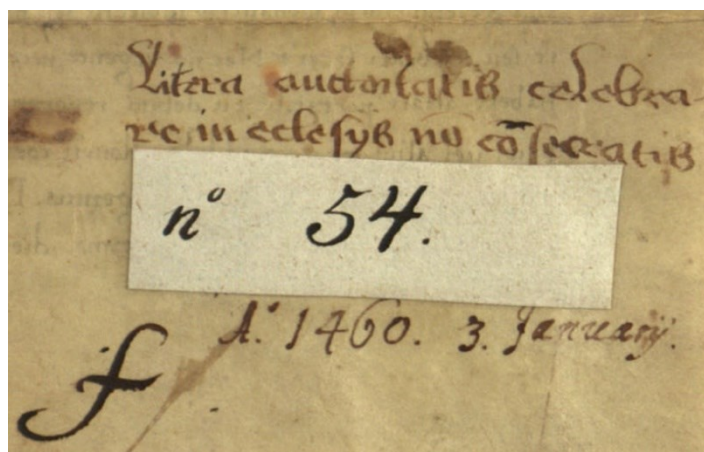 Litera auctoritatis celebra-
re in eclesys nō cōsecratis
nº 54.
Aº. 1460. 3. January.
f